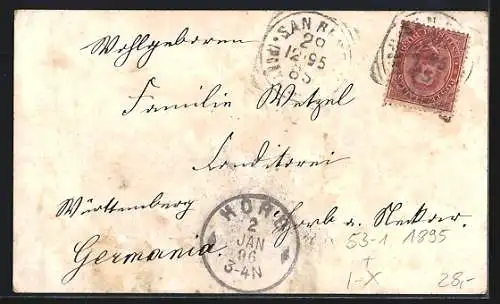 SAN RE
28
12 95
Wohlgeboren
Familie Wetzel
Conditorei
Württemberg Horb a. Neckar.
Germania.
HORB
2
JAN
96
3-4N
53-1 1895
+
1-X
28,-